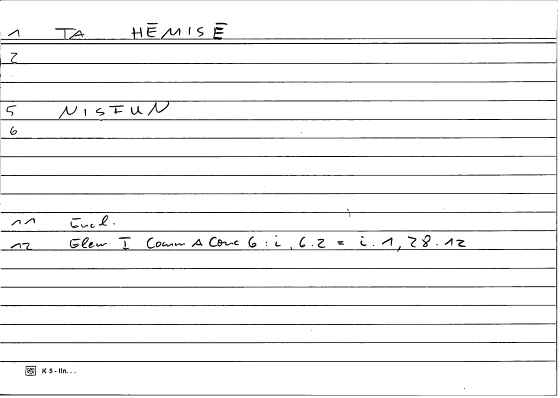 1 TA HĒMISĒ
2
5 NISFUN
6
11 Eucl.
12 Elem I Comm A Conc 6 : i, 6.2 = i.1, 28.12
K 5 - lin...